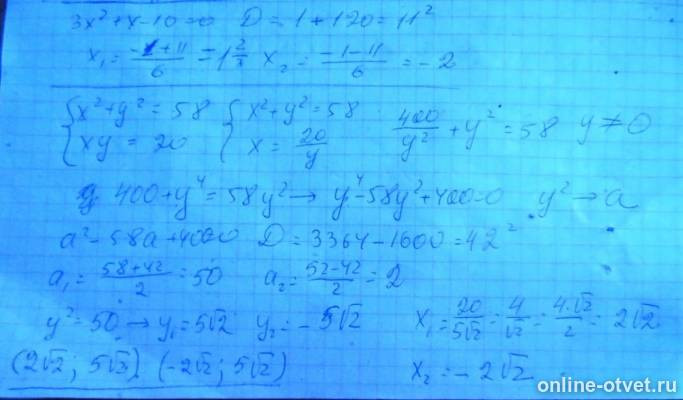 3x² + x - 10 = 0 D = 1 + 120 = 11²
x₁ = (-1 + 11)/6 = 1 2/3 x₂ = (-1 - 11)/6 = -2
{x² + y² = 58 {x² + y² = 58 400/y² + y² = 58 y ≠ 0
{xy = 20 {x = 20/y
400 + y⁴ = 58y² → y⁴ - 58y² + 400 = 0 y² → a
a² - 58a + 400 = 0 D = 3364 - 1600 = 42²
a₁ = (58 + 42)/2 = 50 a₂ = (52 - 42)/2 = 2
y² = 50 → y₁ = 5√2 y₂ = -5√2 x₁ = 20/5√2 = 4/√2 = 4·√2/2 = 2√2
(2√2; 5√2) (-2√2; 5√2) x₂ = -2√2
online-otvet.ru